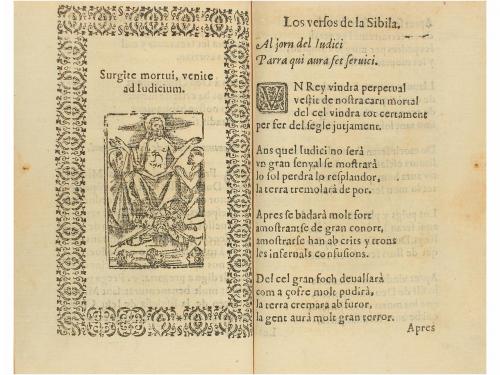 Surgite mortui, venite
ad Iudicium.
Los versos de la Sibila.
Al jorn del Iudici
Parra qui aura fet seruici.
VN Rey vindra perpetual
vestit de nostra carn mortal
del cel vindra tot certament
per fer del segle jutjament.
Ans quel Iudici no serà
vn gran senyal se mostrarà
lo sol perdra lo resplandor,
la terra tremolarà de por.
Apres se badarà molt fort
amostrantse de gran conort,
amostrarse han ab crits y trons
les infernals confusions.
Del cel gran foch deuallarà
com a çofre molt pudirà,
la terra cremarà ab furor,
la gent aurà molt gran terror.
Apres